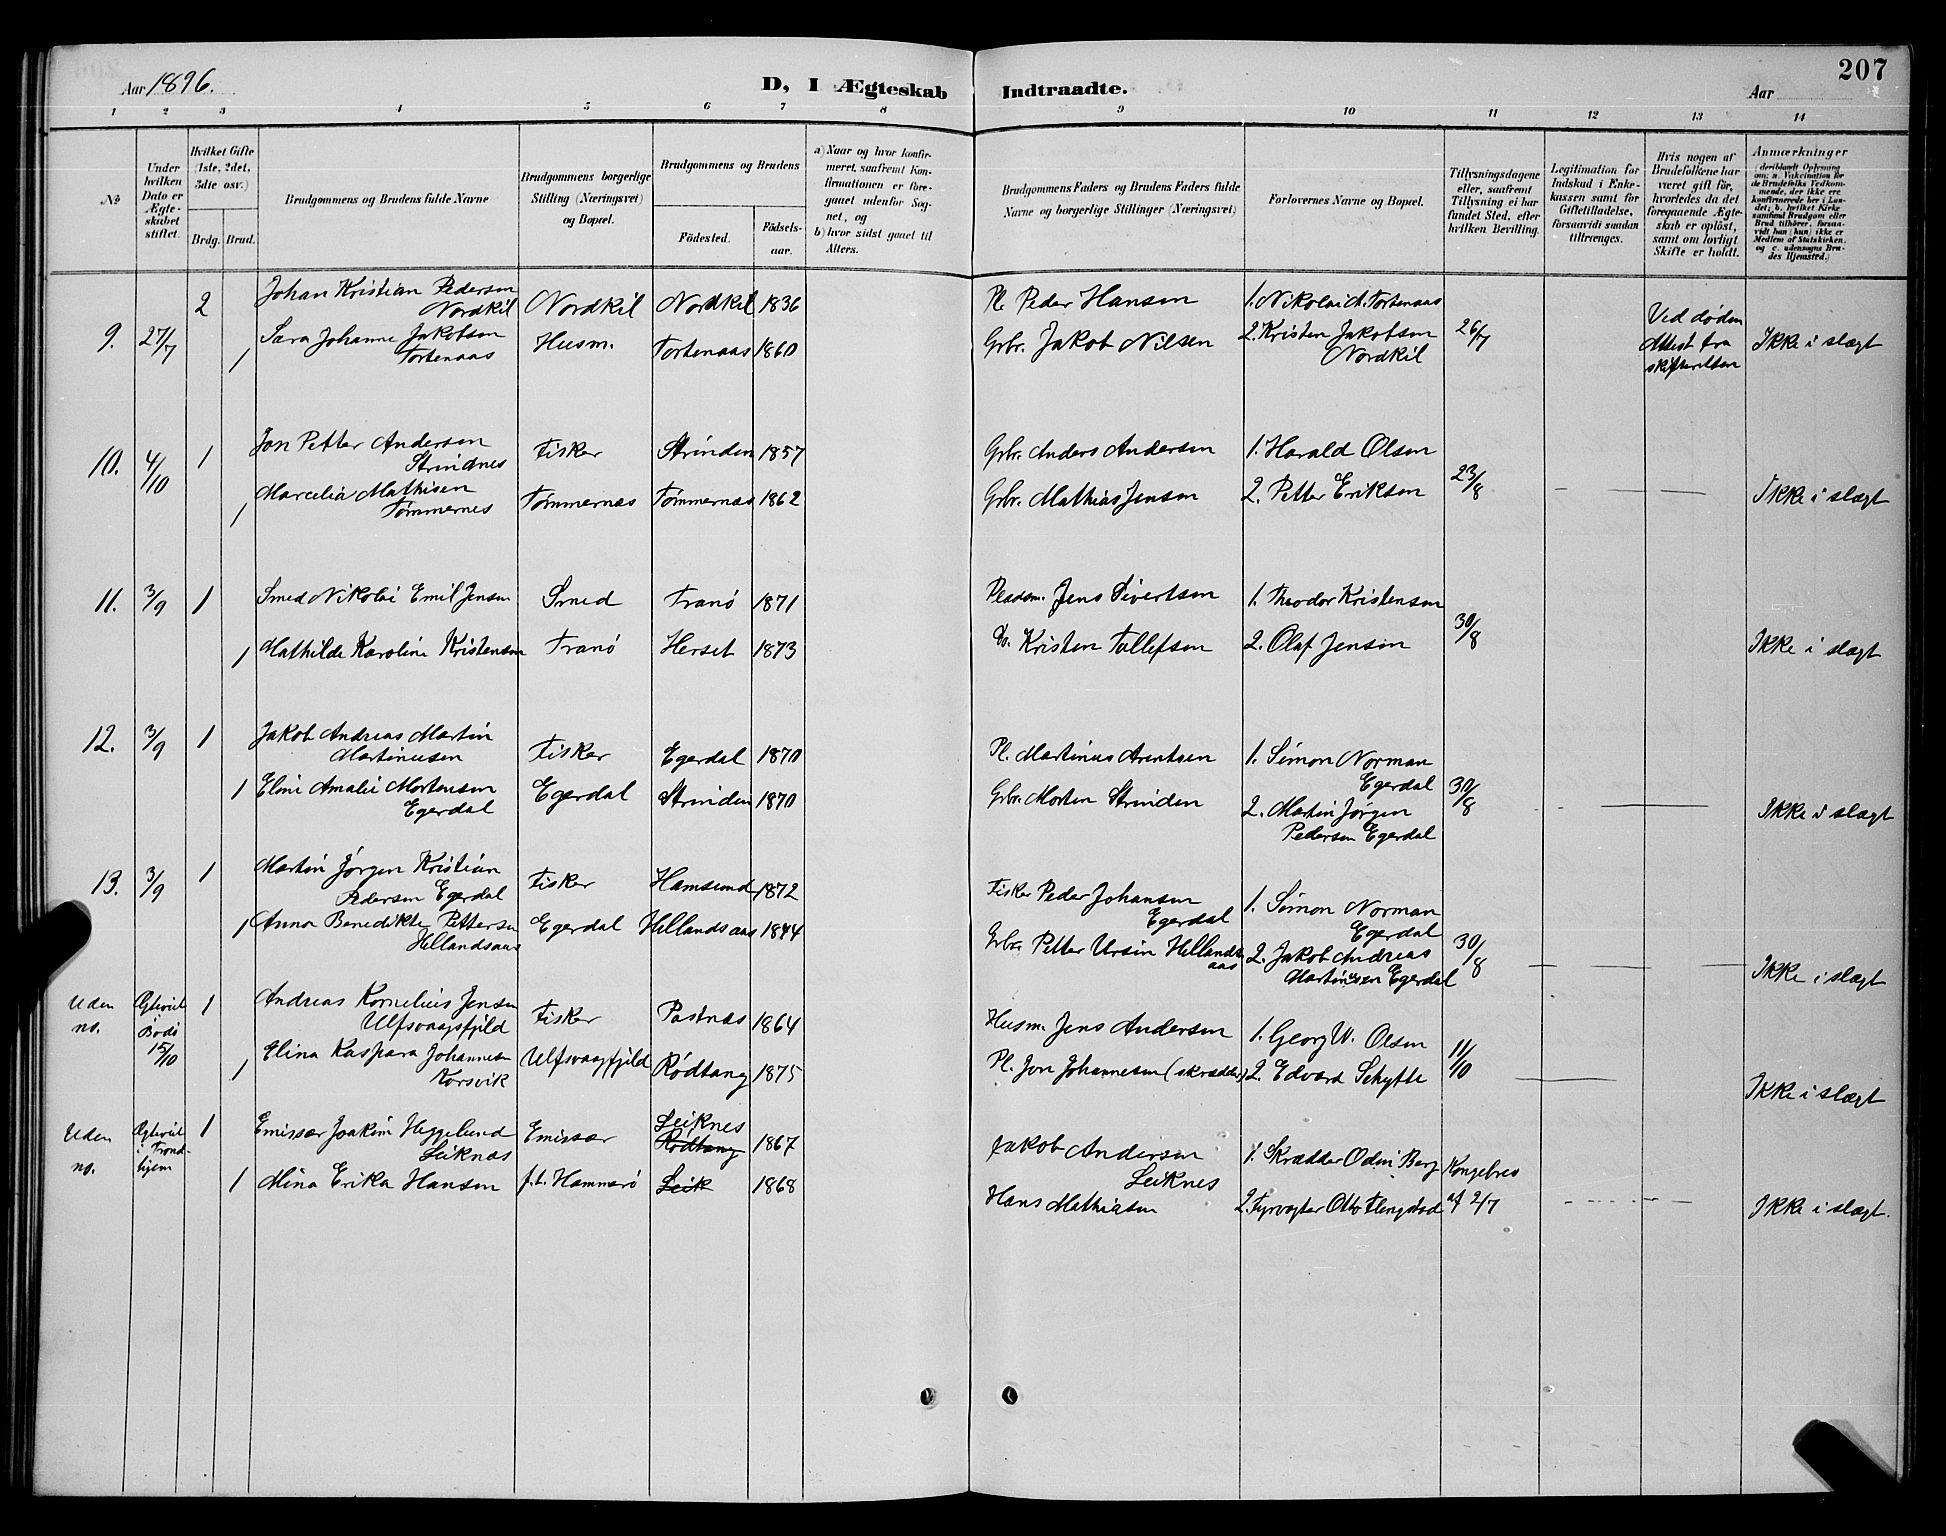 Aar 1896.
D, I Ægteskab Indtraadte.
207
Aar
1 2 3 4 5 6 7 8 9 10 11 12 13 14
No
Under hvilken Dato er Ægteskabet stiftet.
Hvilket Gifte (1ste, 2det, 3die osv.)
Brdg. Brud.
Brudgommens og Brudens fulde Navne
Brudgommens borgerlige Stilling (Næringsvei) og Bopæl.
Brudgommens og Brudens
Födested. Födselsaar.
a) Naar og hvor konfirmeret, saafremt Konfirmationen er foregaaet udenfor Sognet, og
b) hvor sidst gaaet til Alters.
Brudgommens Faders og Brudens Faders fulde Navne og borgerlige Stillinger (Næringsvei)
Forlovernes Navne og Bopæl.
Tillysningsdagene eller, saafremt Tillysning ei har fundet Sted, efter hvilken Bevilling.
Legitimation for Indskud i Enkekassen samt for Giftetilladelse, forsaavidt saadan tiltrænges.
Hvis nogen af Brudefolkene har været gift før, hvorledes da det foregaaende Ægteskab er opløst, samt om lovligt Skifte er holdt.
Anmærkninger (deriblandt Oplysning om: a. Vakcination for de Brudefolks Vedkommende, der ikke ere konfirmerede her i Landet; b. hvilket Kirkesamfund Brudgom eller Brud tilhører, forsaavidt han (hun) ikke er Medlem af Statskirken, og c. udensogns Brudes Hjemsted.)
9. 27/7 2 Johan Kristian Pedersen Nordkil Nordkil Nordkil 1836 Pl. Peder Hansen 1. Nikolai A. Tortenaas Ved døden
1 Sara Johanne Jakobsen Tortenaas Husm. Tortenaas 1860 Grbr. Jakob Nilsen 2. Kristen Jakobsen Nordkil 26/7 Attest fra skifteretten Ikke i slægt
10. 4/10 1 Jon Petter Andersen Strindnes Fisker Strinden 1857 Grbr. Anders Andersen 1. Harald Olsen
1 Marcelia Mathisen Tømmernes Tømmernæs Tømmernæs 1862 Grbr. Mathias Jensen 2. Petter Eriksen 23/8 Ikke i slægt
11. 3/9 1 Smed Nikolai Emil Jensen Smed Tranø 1871 Pladsm. Jens Sivertsen 1. Theodor Kristensen
1 Mathilde Karoline Kristensen Tranø Herset 1873 Do. Kristen Tollefsen 2. Olaf Jensen 30/8 Ikke i slægt
12. 3/9 1 Jakob Andreas Martin Martinusen Fisker Egerdal 1870 Pl. Martinus Arentsen 1. Simon Norman Egerdal
1 Eline Amalie Mortensen Egerdal Egerdal Strinden 1870 Grbr. Morten Strinden 2. Martin Jørgen Pedersen Egerdal 30/8 Ikke i slægt
13. 3/9 1 Martin Jørgen Kristian Pedersen Egerdal Fisker Hamsund 1872 Fisker Peder Johansen Egerdal 1. Simon Norman Egerdal
1 Anna Benedikte Pettersen Hillandsaas Egerdal Hillandsaas 1844 Grbr. Petter Ursin Hillandsaas 2. Jakob Andreas Martinusen Egerdal 30/8 Ikke i slægt
Uden no. Ægteviet i Bodø 15/10 1 Andreas Kornelius Jensen Ulfsvaagsfjeld Fisker Postnæs 1864 Husm. Jens Andersen 1. Georg W. Olsen
1 Elina Kaspara Johannesen Korsvik Ulfsvaagfjeld Rødtang 1875 Pl. Jon Johannesen (skrædder) 2. Edvard Schytte 11/10 Ikke i slægt
Uden no. Ægteviet i Trondhjem 1 Emissær Joakim Heggelund Leiknæs Emissær Leiknes Rødtang 1867 Jakob Andersen Leiknes 1. Skrædder Odin Berg Kongebrev
1 Mina Erika Hansen f.t. Hammerø Leik 1868 Hans Mathisen 2. Fyrvogter Otto Flengstad af 2/7 Ikke i slægt.